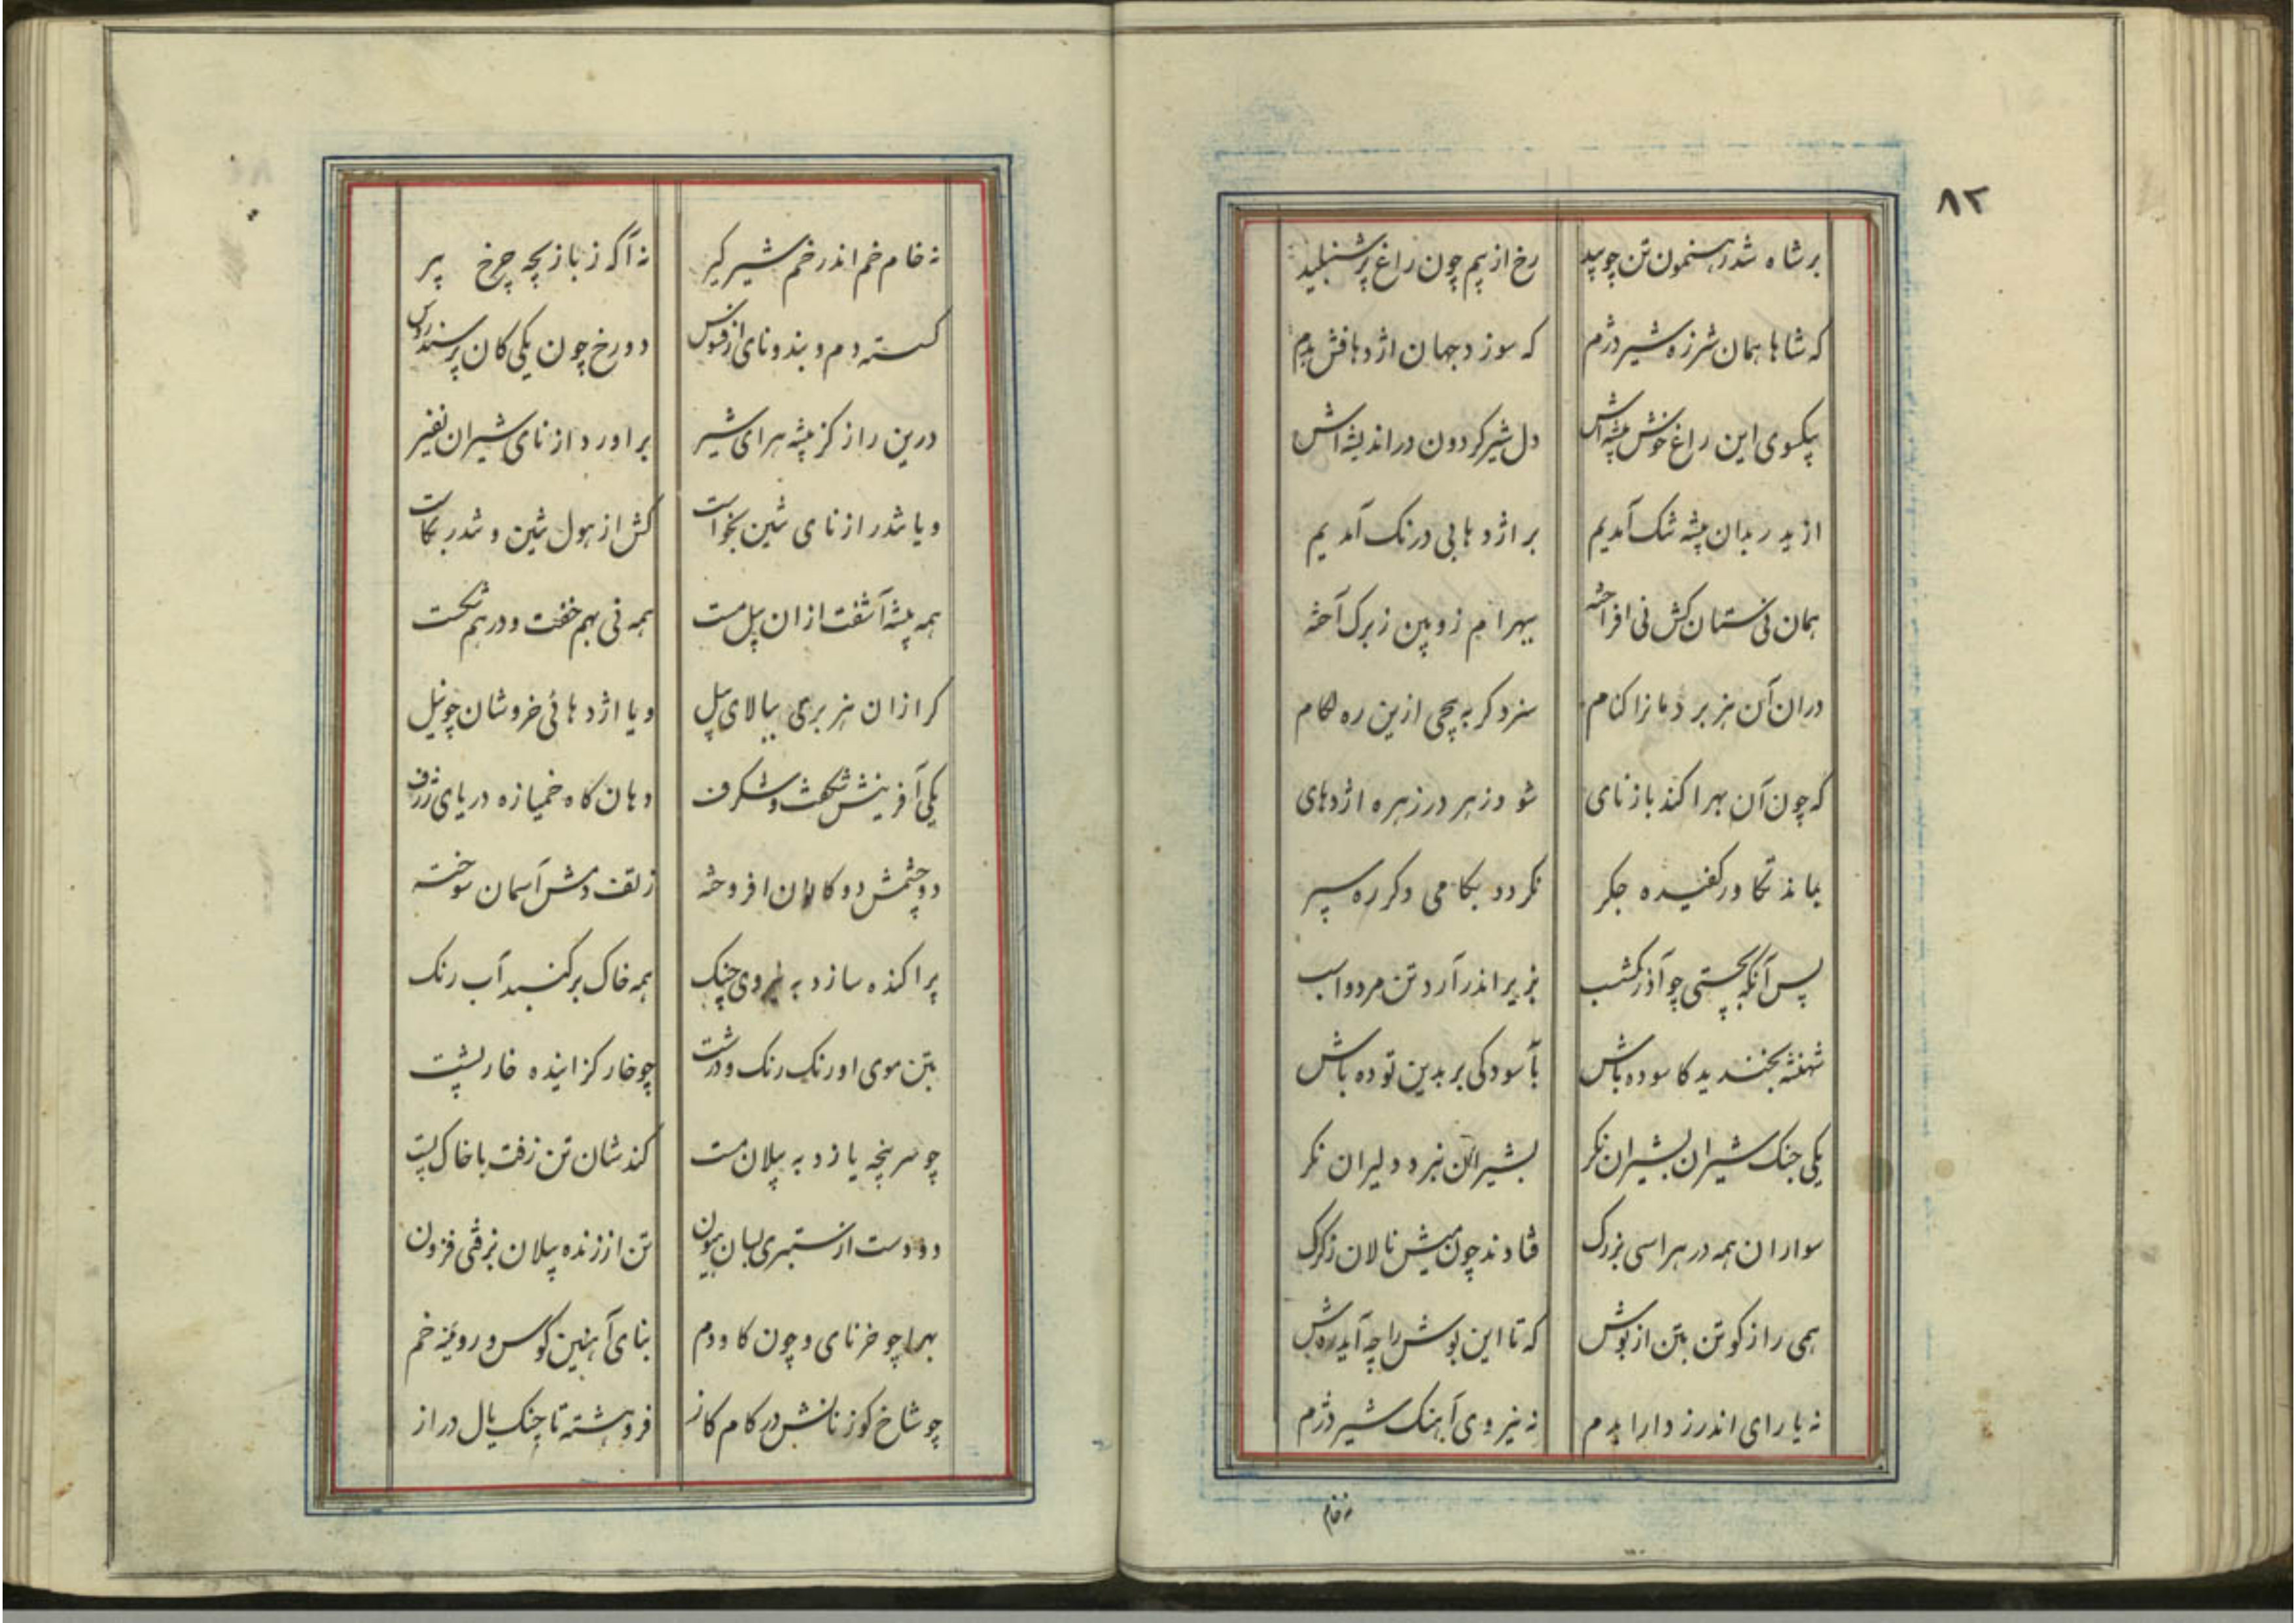 ۸۲
بر شاه شد رهنمون تن چو بید رخ از بیم چون راغ پر شنبلید
که شاها همان شرزه شیر دژم که سوزد جهان اژدهافش بدم
بیکسوی این راغ خوش بیشه‌اش دل شیر کردون در اندیشه‌اش
از ایدر بدان بیشه تنک آمدیم بر اژدهایی درنک آمدیم
همان نی‌ستان کش نی افراخته ببهرام زوبین ز برک آخته
دران آن هزبر دمانرا کنام سزد کر بپیچی ازین ره لکام
که چون آن بهرا کند باز نای شود زهر در زهره اژدهای
بماند تکاور کفیده جکر نکردد بکامی دکر ره سپر
پس آنکه بچستی چو آذرکشسب بزیر اندر آرد تن مرد و اسب
شهنشه بخندید کاسوده باش بآسودکی بر بدین توده باش
یکی جنک شیران بشیران نکر بشیران نبرد دلیران نکر
سواران همه در هراسی بزرک فتادند چون میش نالان ز کرک
همی راز کو تن بتن از بوش که تا این بوش را چه آید روش
نه یارای اندرز دارا بدم نه نیروی آهنک شیر دژم
نه خام
نه خام خم اندر خم شیرکیر نه آکه ز بازیچه چرخ پیر
کسسته دم و بند و نای از فسوس دو رخ چون یکی کان پر سندروس
درین راز کز بیشه هرای شیر براورد از نای شیران نفیر
و یا تندر از نای تنین بخواست کش از هول تنین و تندر بکاست
همه بیشه آشفت ازان پیل مست همه نی بهم خفت و درهم شکست
کرازان هزبری ببالای پیل و یا اژدهائی خروشان چو نیل
یکی آفرینش شکفت و شکرف دهان کاه خمیازه دریای ژرف
دو چشمش دو کانون افروخته ز تف دمش آسمان سوخته
پراکنده سازد به نیروی چنک همه خاک بر کنبد آب رنک
بتن موی او رنک رنک و درشت چو خار کزاینده خارپشت
چو سرپنجه یازد به پیلان مست کندشان تن زفت با خاک پست
دو دست از ستبری بسان هیون تن از زنده پیلان بزفتی فزون
بهرا چو خرنای و چون کاودم بنای آهنین کوس و روئینه خم
چو شاخ کوزنانش در کام کاز فروهشته تا چنک یال دراز